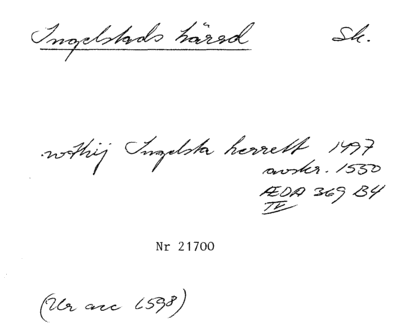 Ingelstads härad Sk.
wthij Ingelsta herrett 1497
avskr. 1550
ÆDA 369 B4
IV
Nr 21700
(Ur acc 1598)